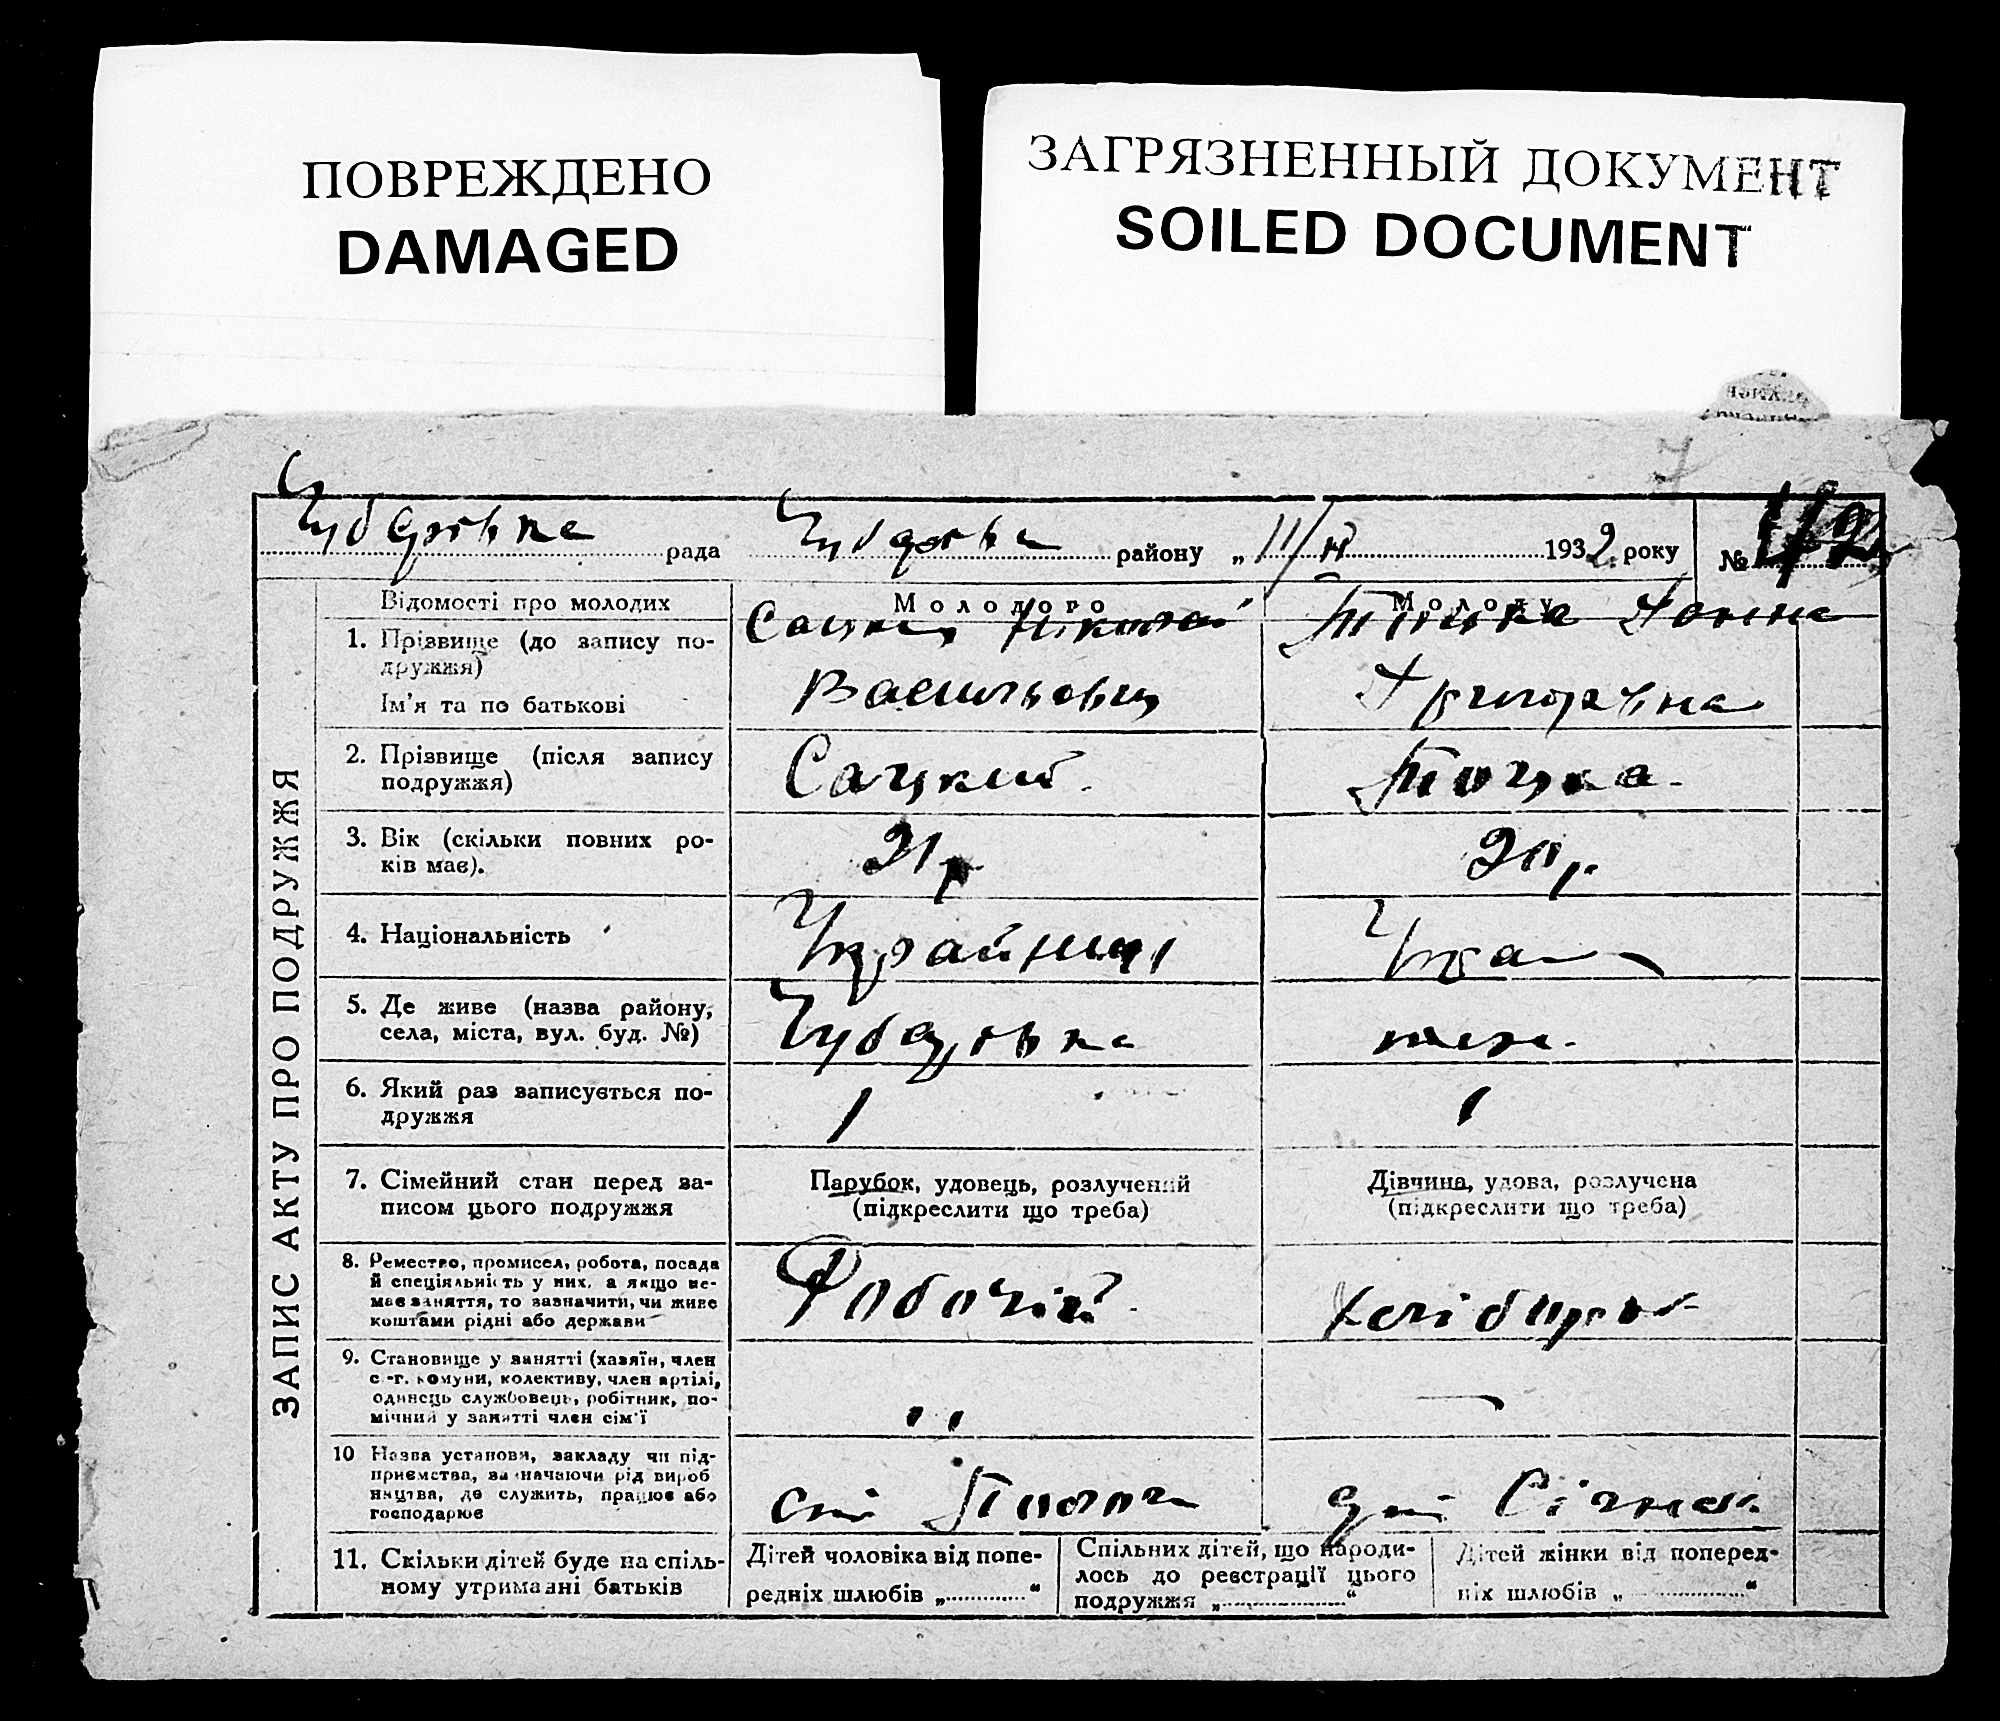 ПОВРЕЖДЕНО
DAMAGED
ЗАГРЯЗНЕННЫЙ ДОКУМЕНТ
SOILED DOCUMENT
Чубарівка рада Чубарівка району „ 11/ 1932 року №
ЗАПИС АКТУ ПРО ПОДРУЖЖЯ
Відомості про молодих
Молодого
Молоду
1. Прізвище (до запису по-
дружжя)
Ім'я та по батькові
Сацкий Николай
Васильович
Григорівна
2. Прізвище (після запису
подружжя)
Сацкий
Тоцка
3. Вік (скільки повних ро-
ків має).
21 р
20 р.
4. Національність
Україн
Укра
5. Де живе (назва району,
села, міста, вул. буд. №)
Чубарівка
теж.
6. Який раз записується по-
дружжя
1
1
7. Сімейний стан перед за-
писом цього подружжя
Парубок, удовець, розлучений
(підкреслити що треба)
Дівчина, удова, розлучена
(підкреслити що треба)
8. Ремество, промисел, робота, посада
й спеціяльність у них, а якщо не-
має заняття, то зазначити, чи живе
коштами рідні або держави
Робочій
Хлібороб
9. Становище у занятті (хазяїн, член
с.-г. комуни, колективу, член артілі,
одинець службовець, робітник, по-
мічний у занятті член сім'ї
„
—
10 Назва установи, закладу чи під-
приємства, зазначаючи рід вироб
ництва, де служить, працює або
господарює
11. Скільки дітей буде на спіль-
ному утриманні батьків
Дітей чоловіка від попе-
редніх шлюбів „............“
Спільних дітей, що народи-
лось до реєстрації цього
подружжя „............“
Дітей жінки від поперед-
ніх шлюбів „............“